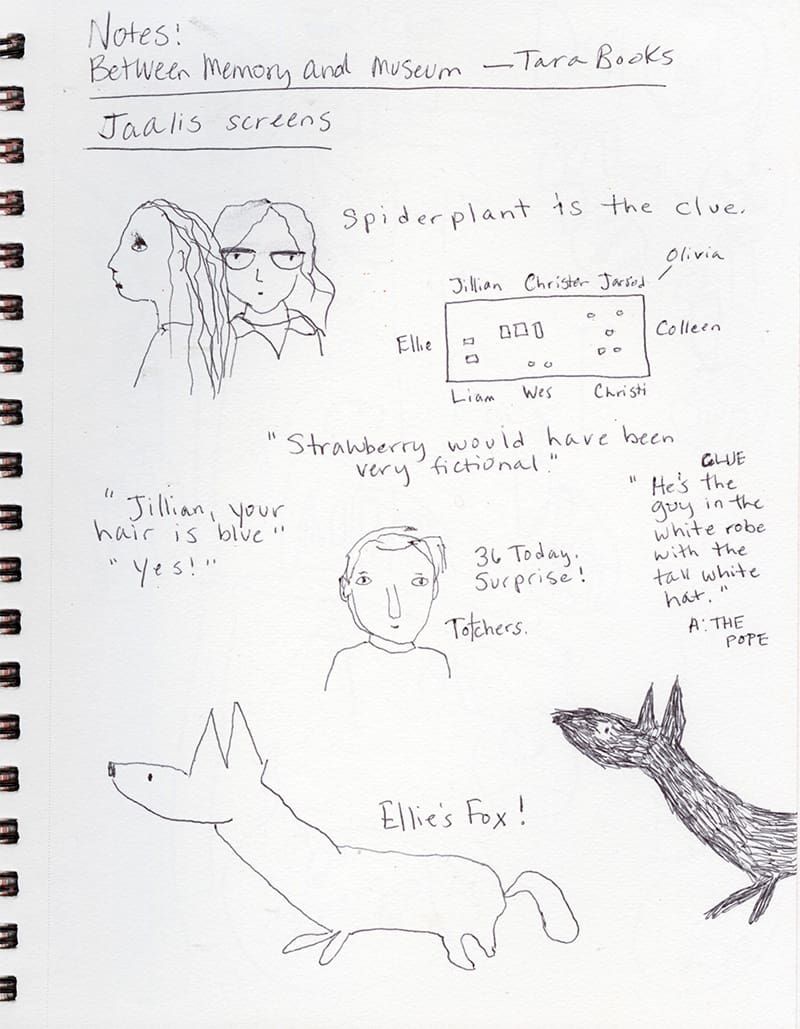 Notes!
Between Memory and Museum — Tara Books
Jaalis screens
Spiderplant is the clue.
Olivia
Jillian Christer Jarrod
Ellie
Colleen
Liam Wes Christi
"Strawberry would have been
very fictional."
"Jillian, your
hair is blue"
"Yes!"
36 Today.
Surprise!
Totchers.
CLUE
"He's the
guy in the
white robe
with the
tall white
hat."
A: THE
POPE
Ellie's Fox!